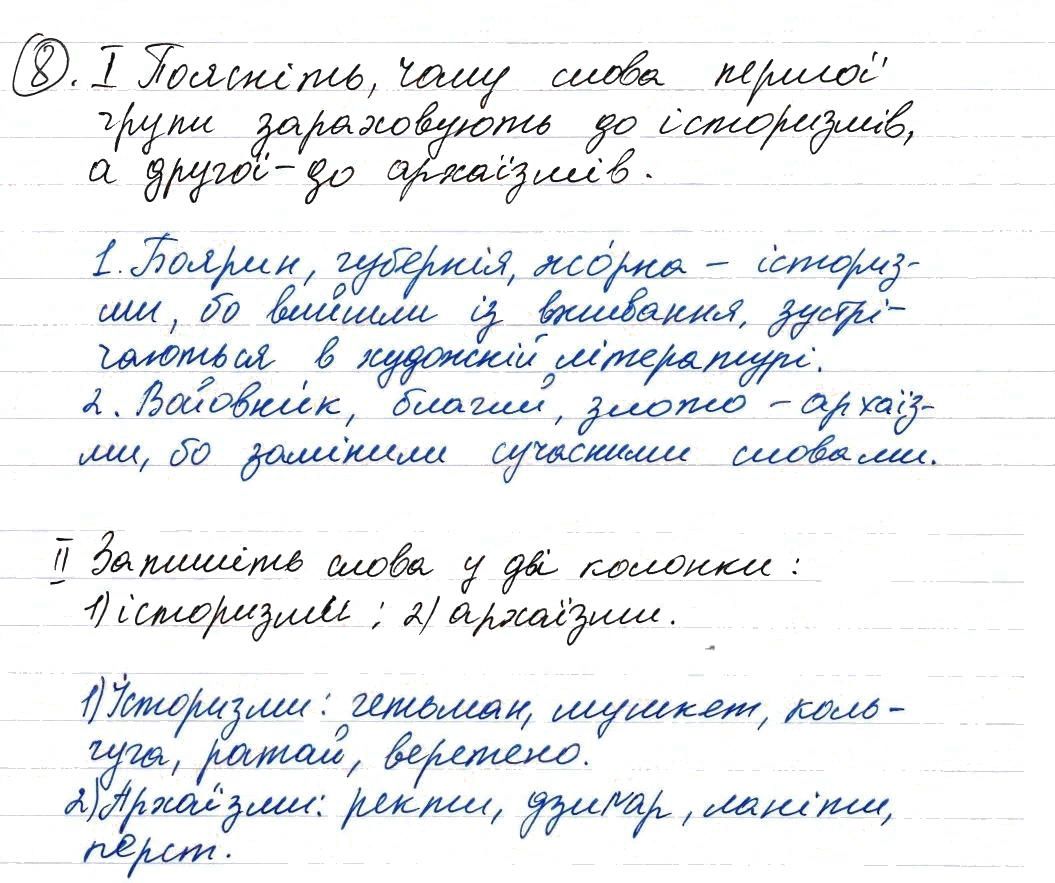 8. I Поясніть, чому слова першої
групи зараховують до історизмів,
а другої - до архаїзмів.
1. Боярин, губернія, жо́рна - істориз-
ми, бо вийшли із вживання, зустрі-
чаються в художній літературі.
2. Войовник, благий, злото - архаїз-
ми, бо замінили сучасними словами.
II Запишіть слова у дві колонки:
1) історизми; 2) архаїзми.
1) Історизми: гетьман, мушкет, коль-
чуга, ратай, веретено.
2) Архаїзми: ректи, дзиґар, ланіти,
перст.